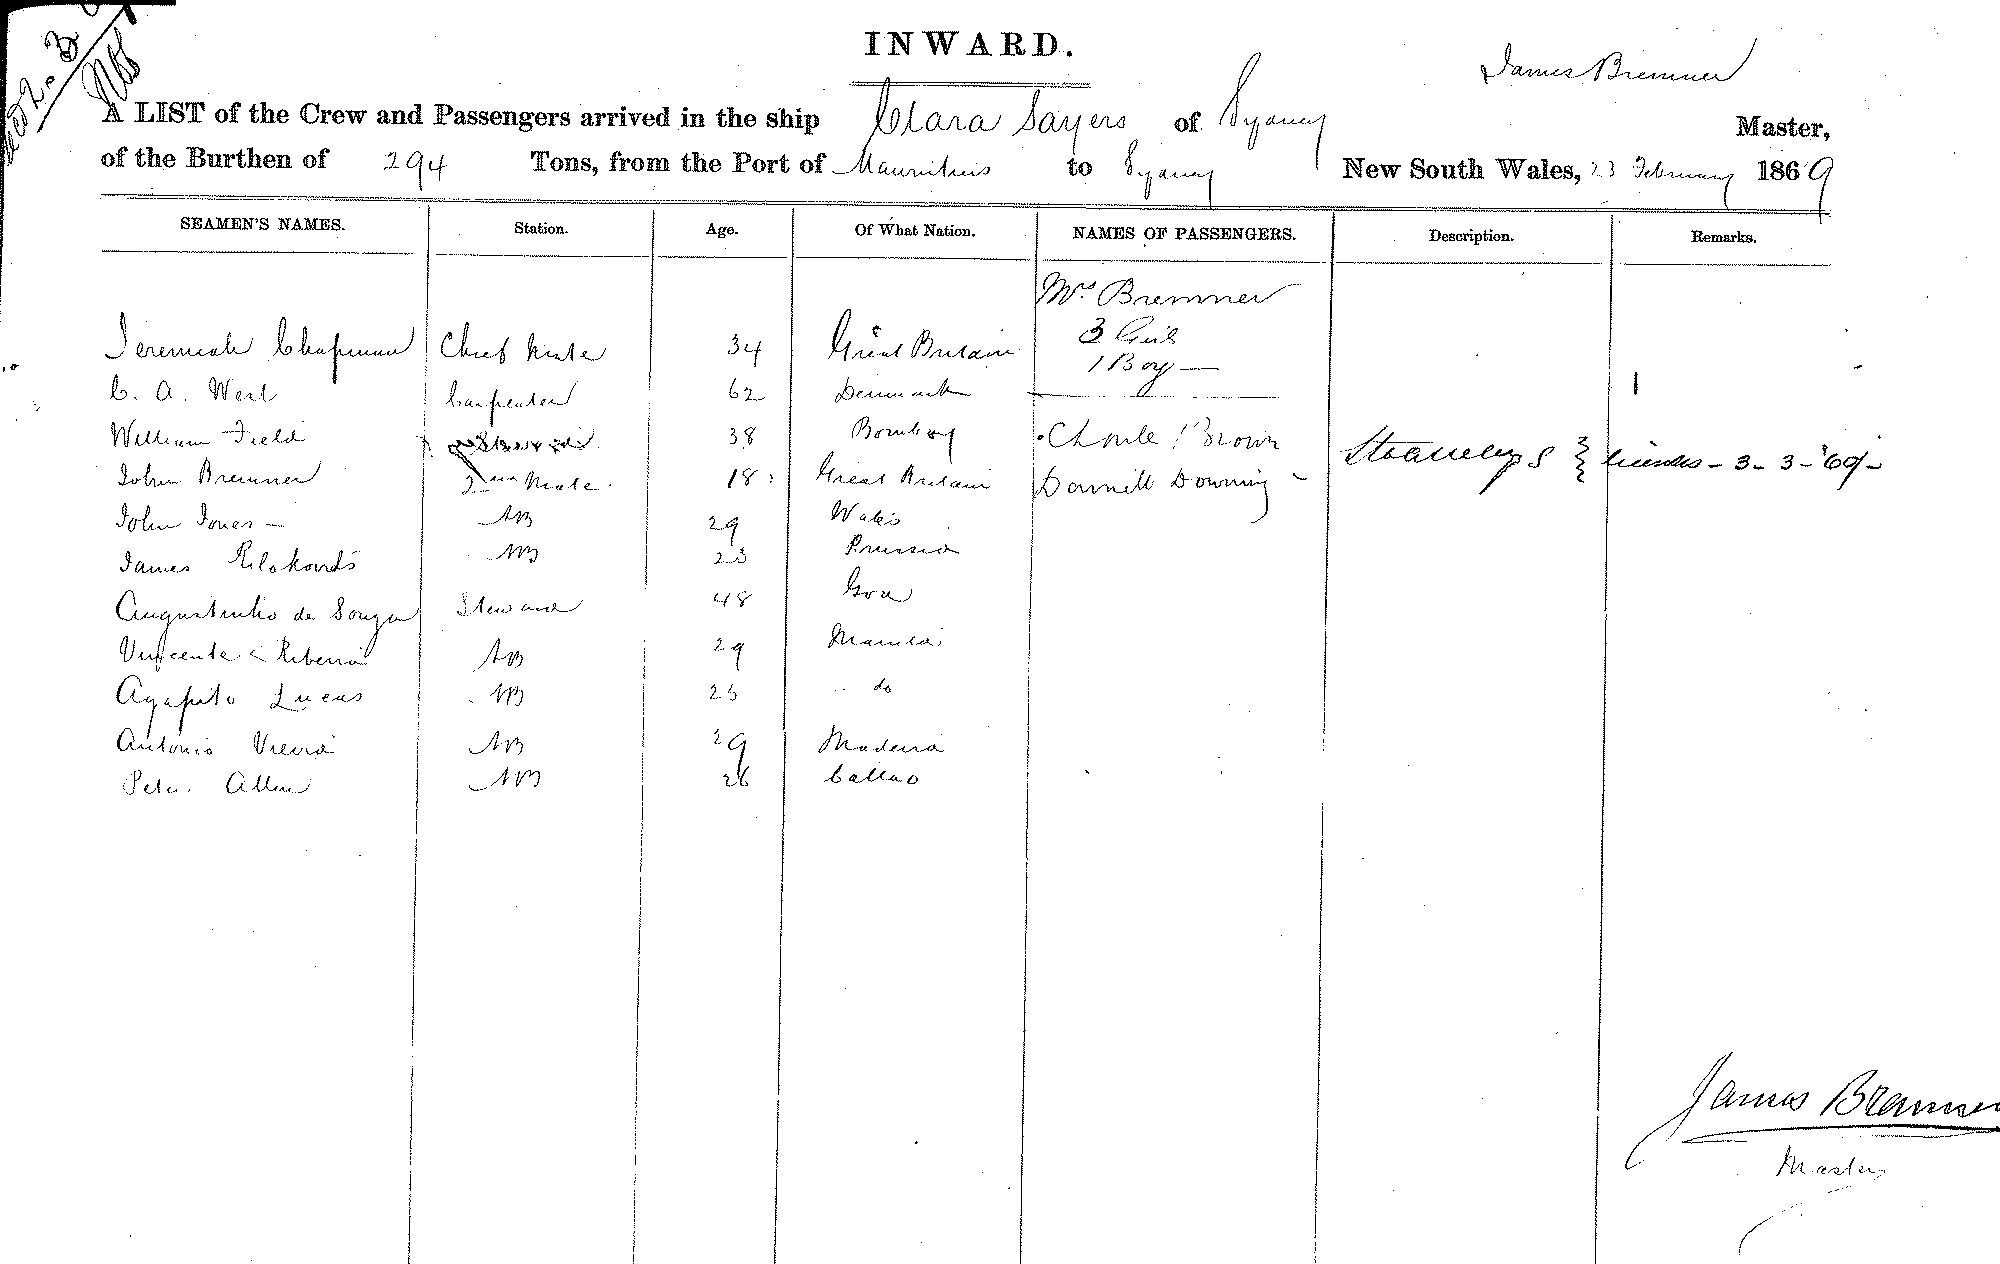 INWARD.
James Bremner
A LIST of the Crew and Passengers arrived in the ship Clara Sayers of Sydney Master,
of the Burthen of 294 Tons, from the Port of Mauritius to Sydney New South Wales, 23 February 1869
SEAMEN'S NAMES. Station. Age. Of What Nation. NAMES OF PASSENGERS. Description. Remarks.
Mrs Bremner
3 Girls
Jeremiah Chapman Chief Mate 34 Great Britain
1 Boy —
C. A. West Carpenter 62 Denmark
William Field 38 Bombay Charles Brown
John Bremner 2nd Mate 18 Great Britain Downing
Stoaways 3-3-'69-
John Jones — AB 29 Wales
James AB 23 Prussia
Augustinho de Souza Steward 48 Goa
Vincente Riberia AB 29 Manila
Agapito Lucas AB 25 do
Antonio Vieira AB 29 Madeira
Peter Allen AB 26 Callao
James Bremner
Master